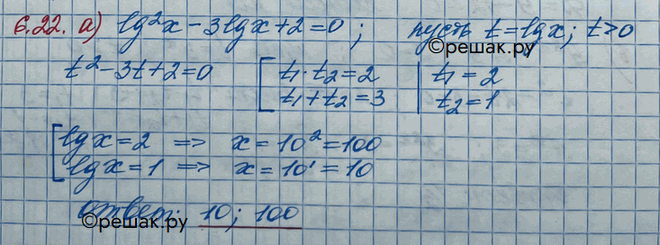 6.22. а) lg²x - 3lgx + 2 = 0; пусть t = lgx; t > 0
©решак.ру
t² - 3t + 2 = 0 [ t₁ · t₂ = 2 | t₁ = 2
t₁ + t₂ = 3 | t₂ = 1
[ lgx = 2 => x = 10² = 100
lgx = 1 => x = 10¹ = 10
ответ: 10; 100
©решак.ру